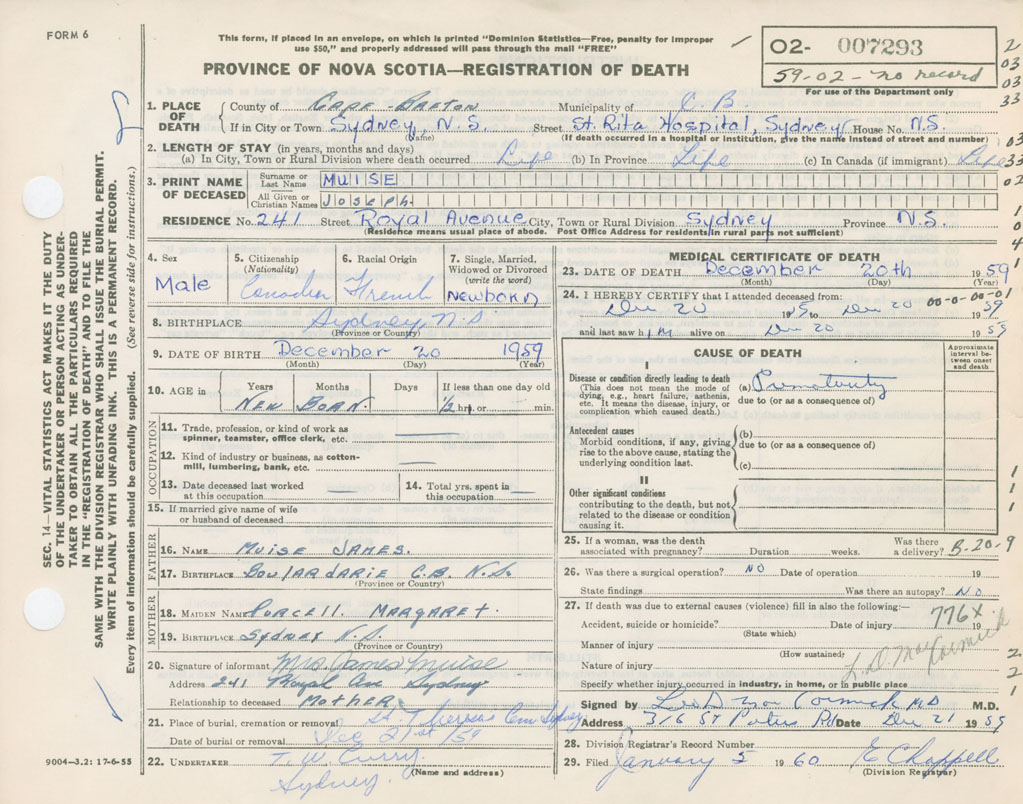 FORM 6
This form, if placed in an envelope, on which is printed "Dominion Statistics—Free, penalty for improper
use $50," and properly addressed will pass through the mail "FREE"
PROVINCE OF NOVA SCOTIA—REGISTRATION OF DEATH
02- 007293
59-02-no record
For use of the Department only
2
03
03
33
1. PLACE OF DEATH
County of Cape-Breton Municipality of C.B.
If in City or Town Sydney, N.S. Street St. Rita Hospital, Sydney House No. N.S.
(Name) (If death occurred in a hospital or institution, give the name instead of street and number)
03
2. LENGTH OF STAY (in years, months and days)
(a) In City, Town or Rural Division where death occurred Life (b) In Province Life (c) In Canada (if immigrant) Life
33
3. PRINT NAME OF DECEASED
Surname or Last Name MUISE
All Given or Christian Names JOSEPH.
02
RESIDENCE No. 241 Street Royal Avenue City, Town or Rural Division Sydney Province N.S.
(Residence means usual place of abode. Post Office Address for residents in rural parts not sufficient)
1
0
4
1
4. Sex Male
5. Citizenship (Nationality) Canadian
6. Racial Origin French
7. Single, Married, Widowed or Divorced (write the word) Newborn
8. BIRTHPLACE Sydney, N.S.
(Province or Country)
9. DATE OF BIRTH December 20 1959
(Month) (Day) (Year)
10. AGE in Years Months Days If less than one day old
New Born. ½ hrs. or min.
OCCUPATION
11. Trade, profession, or kind of work as
spinner, teamster, office clerk, etc.
12. Kind of industry or business, as cotton-
mill, lumbering, bank, etc.
13. Date deceased last worked
at this occupation
14. Total yrs. spent in
this occupation
15. If married give name of wife
or husband of deceased
FATHER
16. NAME MUISE JAMES.
17. BIRTHPLACE BOULARDARIE C.B. N.S.
(Province or Country)
MOTHER
18. MAIDEN NAME PURCELL. MARGARET.
19. BIRTHPLACE SYDNEY N.S.
(Province or Country)
20. Signature of informant Mrs. James Muise
Address 241 Royal Ave Sydney
Relationship to deceased MOTHER
21. Place of burial, cremation or removal St. Theresa's Cem Sydney
Date of burial or removal Dec 21st /59
22. UNDERTAKER T. W. Curry.
Sydney.
(Name and address)
MEDICAL CERTIFICATE OF DEATH
23. DATE OF DEATH December 20th 1959
(Month) (Day) (Year)
24. I HEREBY CERTIFY that I attended deceased from: 00-0-00-01
Dec 20 19 59 to Dec 20 19 59
and last saw him alive on Dec 20 19 59
CAUSE OF DEATH
Approximate interval between onset and death
I
Disease or condition directly leading to death
(This does not mean the mode of
dying, e.g., heart failure, asthenia,
etc. It means the disease, injury, or
complication which caused death.)
(a) Prematurity
due to (or as a consequence of)
Antecedent causes
Morbid conditions, if any, giving
rise to the above cause, stating the
underlying condition last.
(b)
due to (or as a consequence of)
(c)
II
Other significant conditions
contributing to the death, but not
related to the disease or condition
causing it.
1
1
1
25. If a woman, was the death
associated with pregnancy? Duration weeks. Was there a delivery? B-20-9
26. Was there a surgical operation? NO Date of operation 19
State findings Was there an autopsy? NO
27. If death was due to external causes (violence) fill in also the following:—
776X
Accident, suicide or homicide? Date of injury 19
(State which)
Manner of injury
(How sustained)
Nature of injury
L. D. MacCormick
Specify whether injury occurred in industry, in home, or in public place
2
2
1
Signed by L. D. MacCormick MD M.D.
Address 316 St Peters Rd Date Dec 21 1959
28. Division Registrar's Record Number
29. Filed January 5 1960 E Chappell
(Division Registrar)
SEC. 14—VITAL STATISTICS ACT MAKES IT THE DUTY
OF THE UNDERTAKER OR PERSON ACTING AS UNDER-
TAKER TO OBTAIN ALL THE PARTICULARS REQUIRED
IN THE "REGISTRATION OF DEATH" AND TO FILE THE
SAME WITH THE DIVISION REGISTRAR WHO SHALL ISSUE THE BURIAL PERMIT.
WRITE PLAINLY WITH UNFADING INK. THIS IS A PERMANENT RECORD.
Every item of information should be carefully supplied. (See reverse side for instructions.)
9004-3.2: 17-6-55